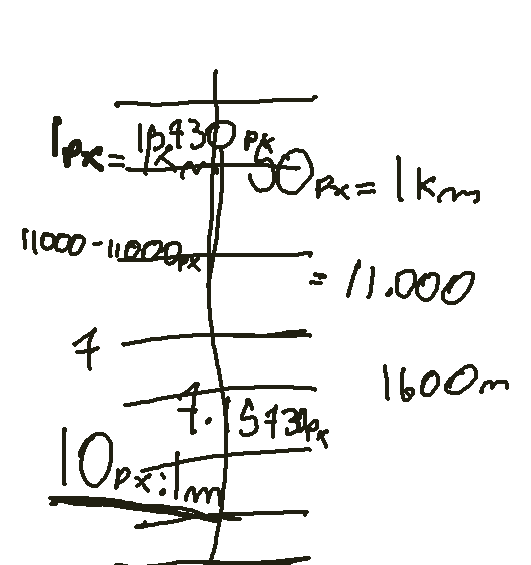 1px=
50px=1km
11000-11000px
= 11.000
7
1600m
7.1543px
10px:1m